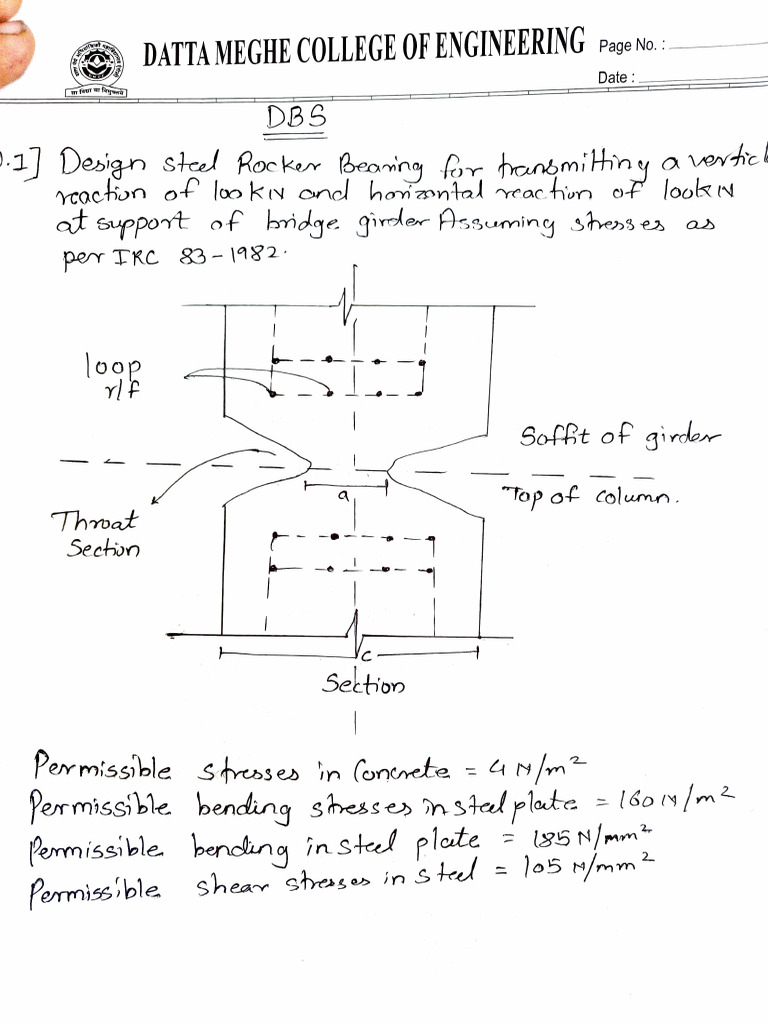 DATTA MEGHE COLLEGE OF ENGINEERING
Page No. :
Date :
DBS
.1] Design steel Rocker Bearing for transmitting a vertic
reaction of 100KN and horizontal reaction of 100KN
at support of bridge girder Assuming stresses as
per IRC 83-1982.
loop
r/f
Soffit of girder
a
Top of column.
Throat
Section
c
Section
Permissible stresses in Concrete = 4 N/m²
Permissible bending stresses in steel plate = 160 N/m²
Permissible bending in steel plate = 185 N/mm²
Permissible shear stresses in steel = 105 N/mm²